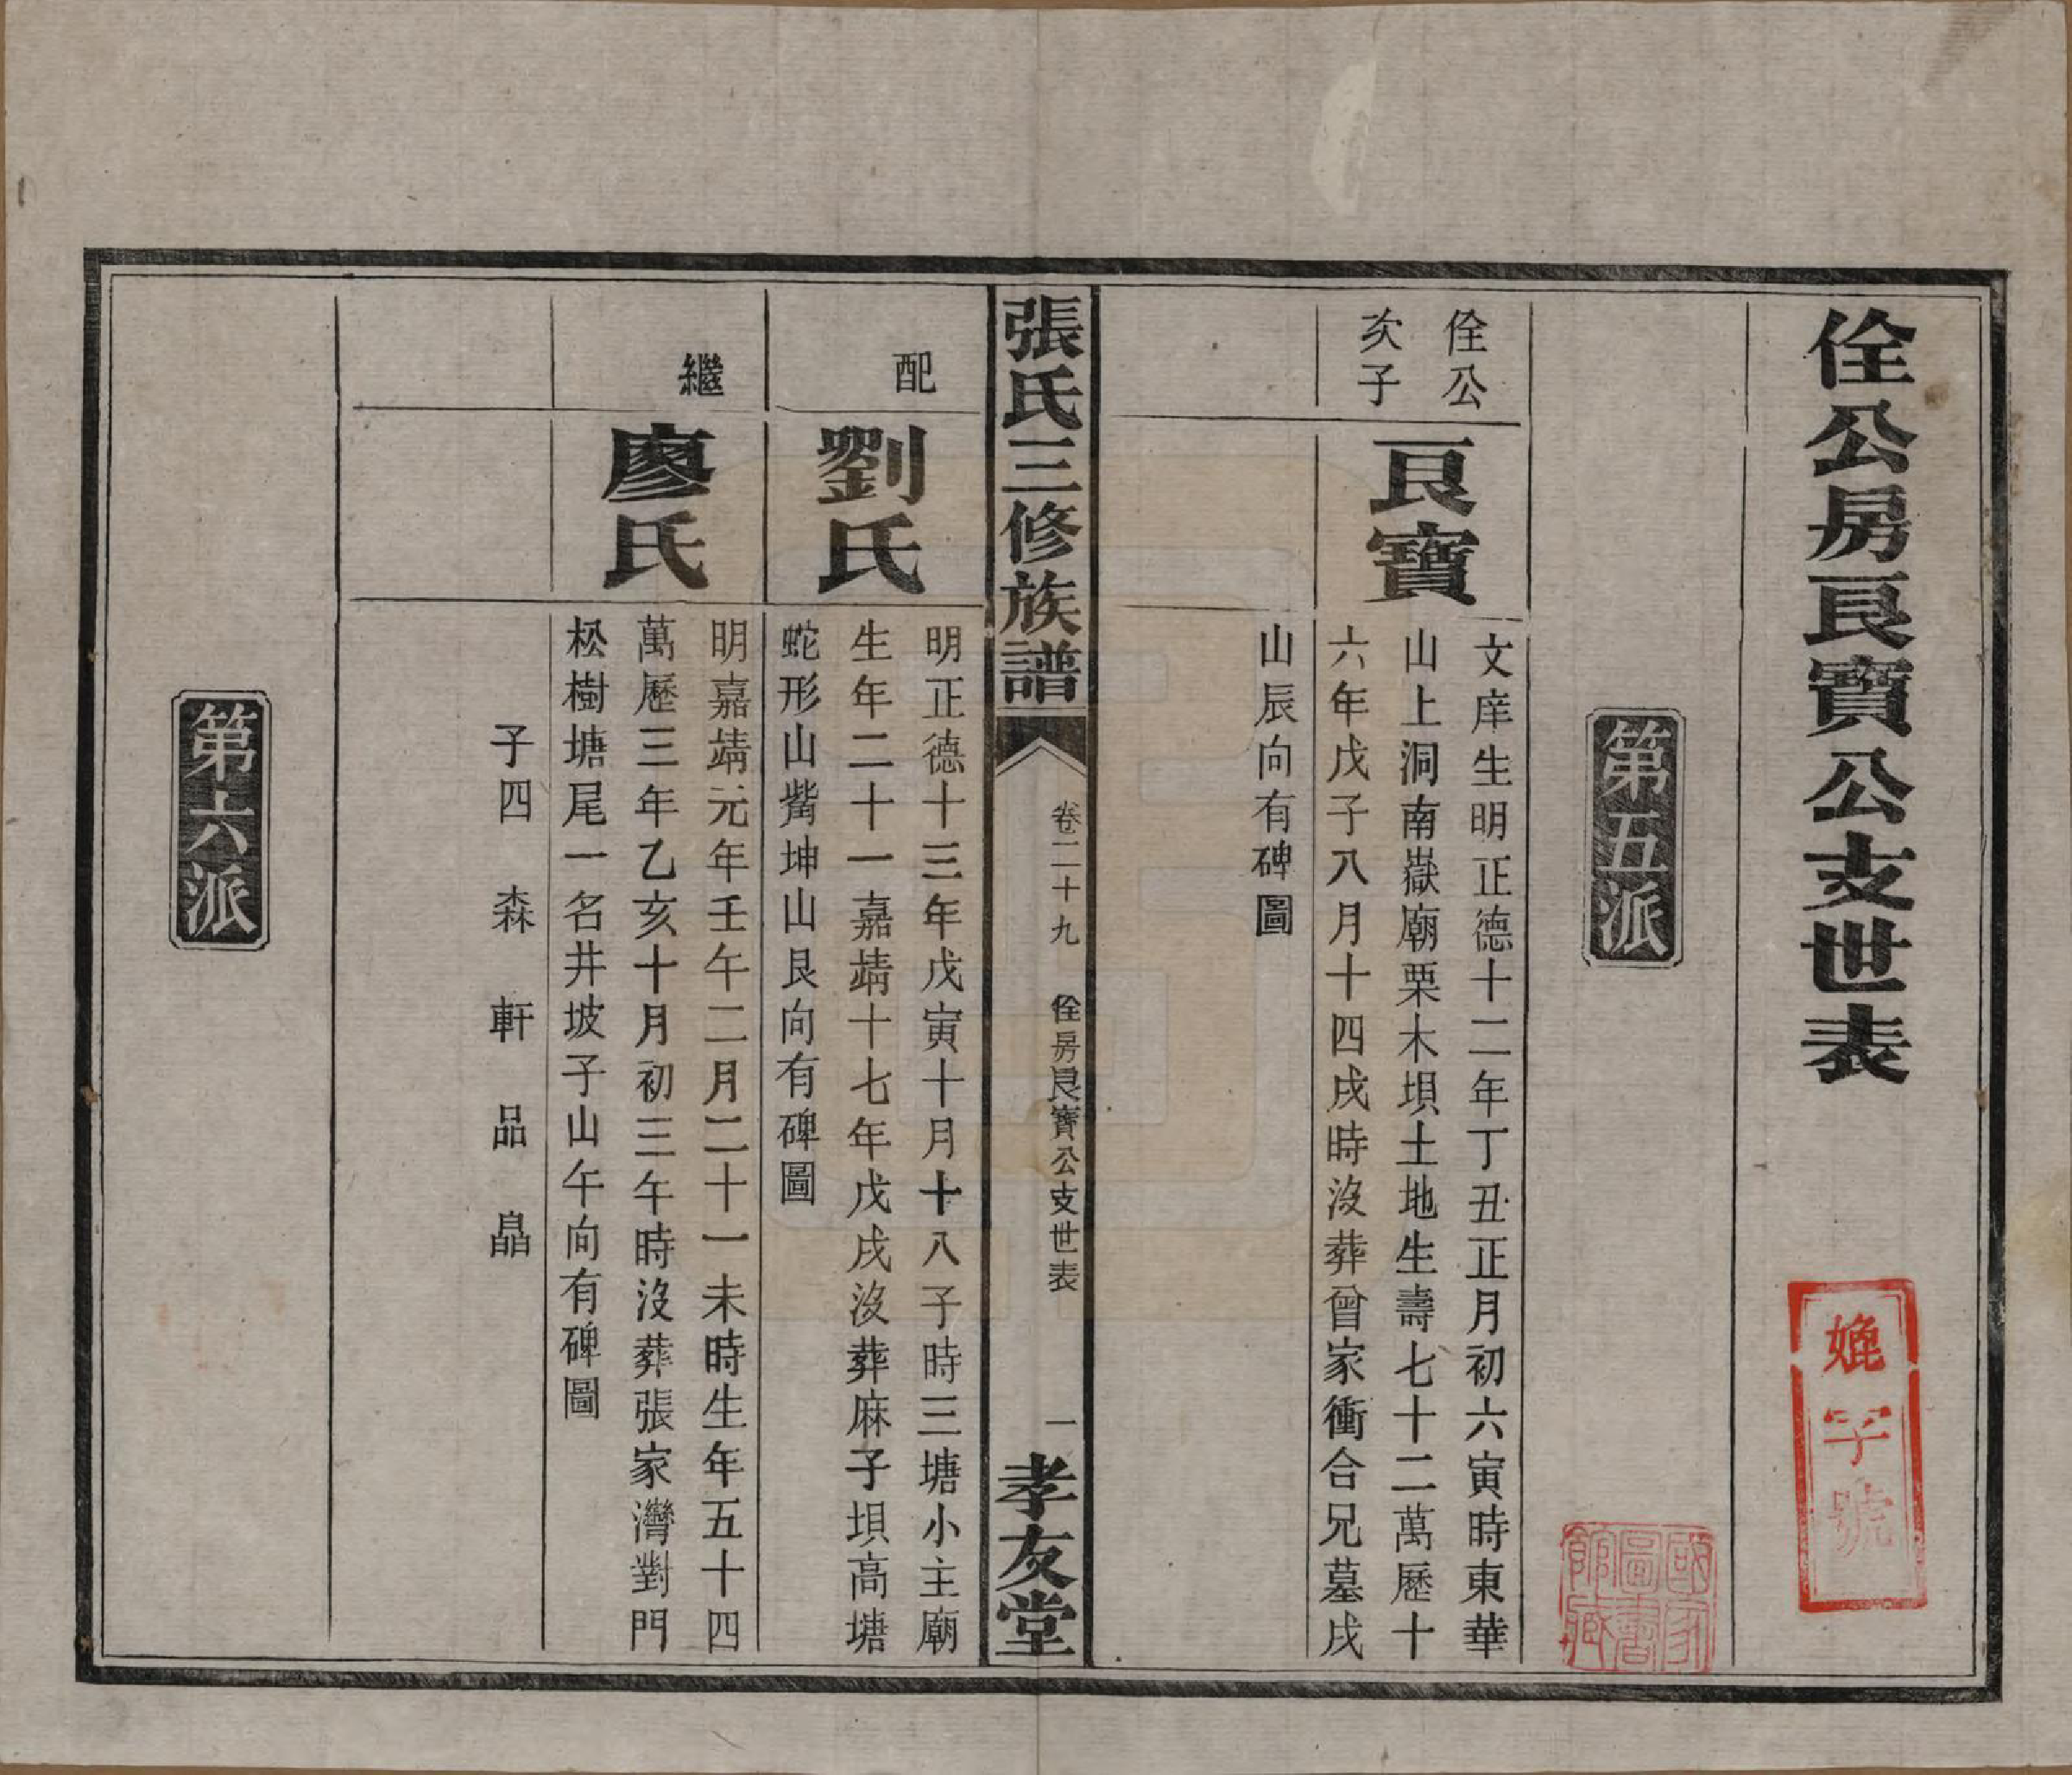 佺公房良寶公支世表
婏字號
國家圖書館藏
第五派
佺公
次子
良寶
文庠生明正德十二年丁丑正月初六寅時東華
山上洞南嶽廟栗木垻土地生壽七十二萬歷十
六年戊子八月十四戌時沒葬曾家衝合兄墓戌
山辰向有碑圖
張氏三修族譜
卷二十九
佺房良寶公支世表
一
孝友堂
配
劉氏
明正德十三年戊寅十月十八子時三塘小主廟
生年二十一嘉靖十七年戊戌沒葬麻子垻高塘
蛇形山觜坤山艮向有碑圖
繼
廖氏
明嘉靖元年壬午二月二十一未時生年五十四
萬歷三年乙亥十月初三午時沒葬張家灣對門
松樹塘尾一名井坡子山午向有碑圖
子四 森 軒 品 晶
第六派